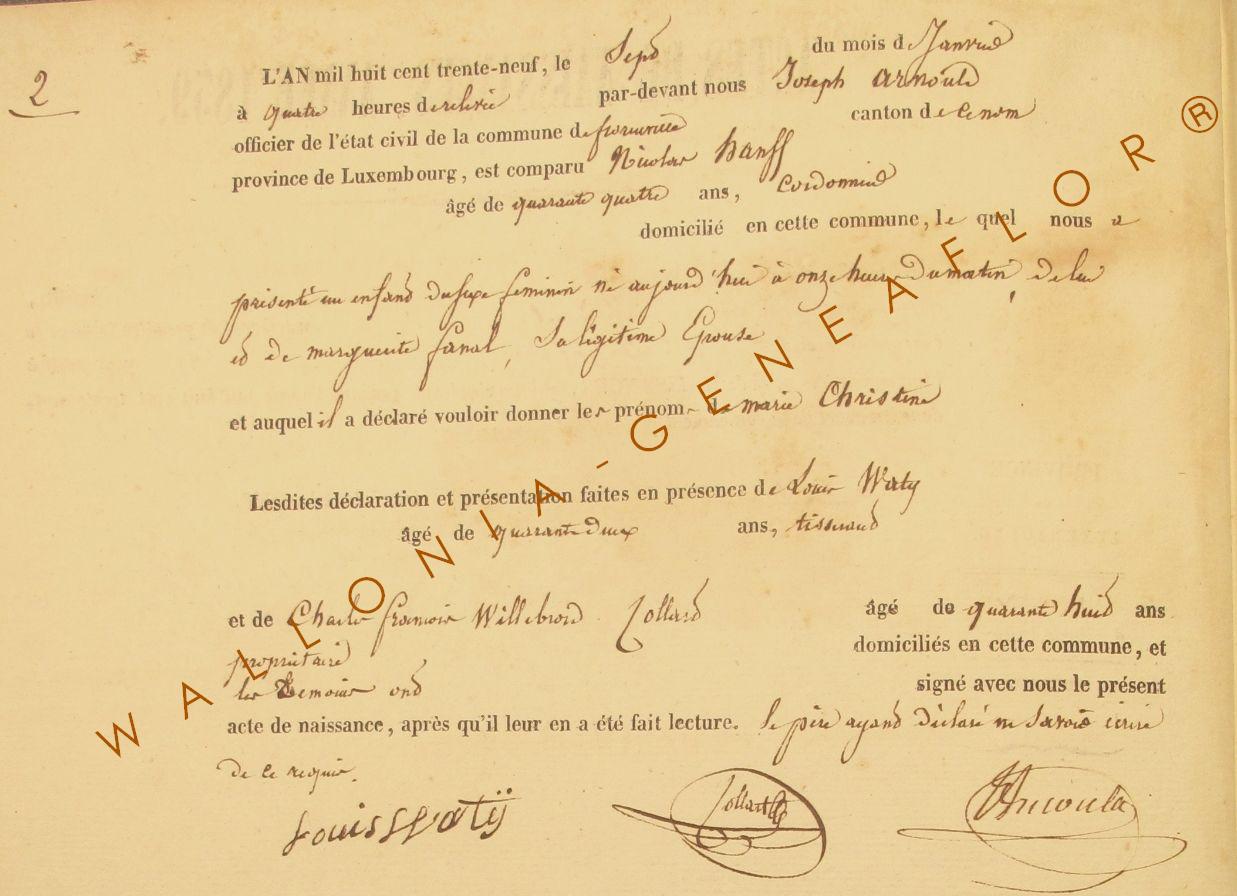 2
L'AN mil huit cent trente-neuf, le Sept du mois de Janvier
à quatre heures de relevée par-devant nous Joseph Arnould
officier de l'état civil de la commune de canton de ce nom
province de Luxembourg, est comparu Nicolas hanff
âgé de quarante quatre ans, cordonnier
domicilié en cette commune, le quel nous a
présenté un enfant du sexe feminin né aujourd'hui à onze heures du matin, de lui
et de marguerite fanal, Sa légitime Epouse
et auquel il a déclaré vouloir donner les prénoms de marie Christine
Lesdites déclaration et présentation faites en présence de Louis Waty
âgé de quarante deux ans, tisserand
et de Charles francois Willebrord Collard âgé de quarante huit ans
propriétaire domiciliés en cette commune, et
les temoins ont signé avec nous le présent
acte de naissance, après qu'il leur en a été fait lecture. le père ayant déclaré ne savoir écrire
de ce requis.
Louis Watÿ Collard
WALLONIA-GENEAFLOR®